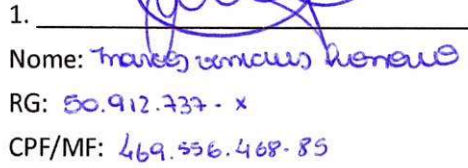 1.
Nome: Marcos Vinicius Romano
RG: 50.912.737-X
CPF/MF: 469.556.468-85